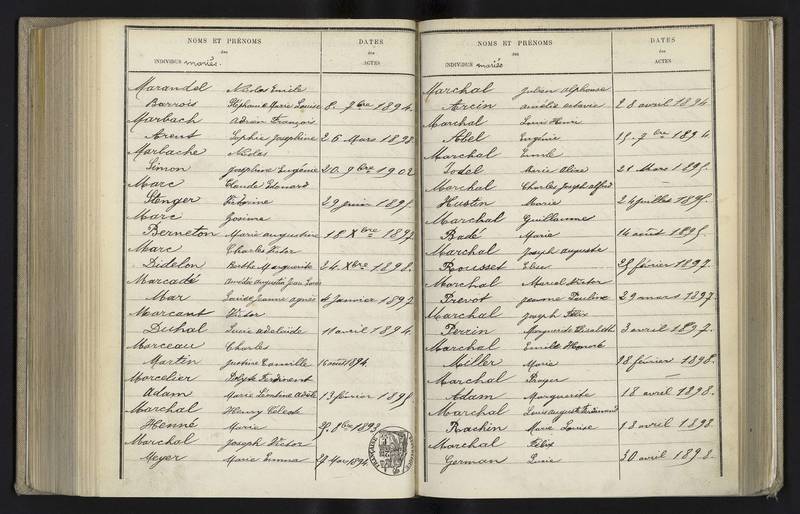 NOMS ET PRÉNOMS
des
INDIVIDUS mariés.
DATES
des
ACTES
Marandel Nicolas Emile
Barrois Stéphanie Marie Louise 8. 7bre 1894.
Marbach Adrien François
Arent Sophie Joséphine 26 Mars 1898
Marbache Nicolas
Simon Joséphine Eugénie 20. 9bre 1902
Marc Claude Edouard
Stenger Victorine 29 juin 1895.
Marc Josime
Berneton Marie augustine 18 Xbre 1897
Marc Charles Victor
Didelon Berthe Marguerite 24. Xbre 1898.
Marcadé Amédée augustin Jean Louis
Mar Louise Jeanne agnès 4 Janvier 1897
Marcant Victor
Duhal Lucie adelaïde 11 avril 1894.
Marceau Charles
Martin Justine Camille 16 août 1894.
Marcelier Ferdinent
Adam Marie Léontine Adèle 13 février 1895
Marchal Henry Céleste
Henné Maria 8bre 1893
Marchal Joseph Victor
Meyer Marie Emma 27 Mars 1894
NOMS ET PRÉNOMS
des
INDIVIDUS mariés
DATES
des
ACTES
Marchal Julien Alphonse
Arcin amélie octavie 28 avril 1894
Marchal Louis Henri
Abel Eugénie 15. 9bre 1894
Marchal Emile
Jodel Marie Aline 21 Mars 1895.
Marchal Charles Joseph alfred
Hustin Marie 24 juillet 1895.
Marchal Guillaume
Badé Marie 14 août 1895.
Marchal Joseph auguste
Rousset Elise 25 février 1897.
Marchal Marcel Victor
Prevot jeanne Pauline 29 mars 1897.
Marchal Joseph Félix
Perrin Marguerite Elisabeth 3 avril 1897.
Marchal Emile Honoré
Miller Marie 18 février 1898.
Marchal Prosper
Adam Marguerite 18 avril 1898.
Marchal Louis auguste Ferdinand
Rachin Marie Louise 18 avril 1898.
Marchal Félix
German Lucie 30 avril 1898.